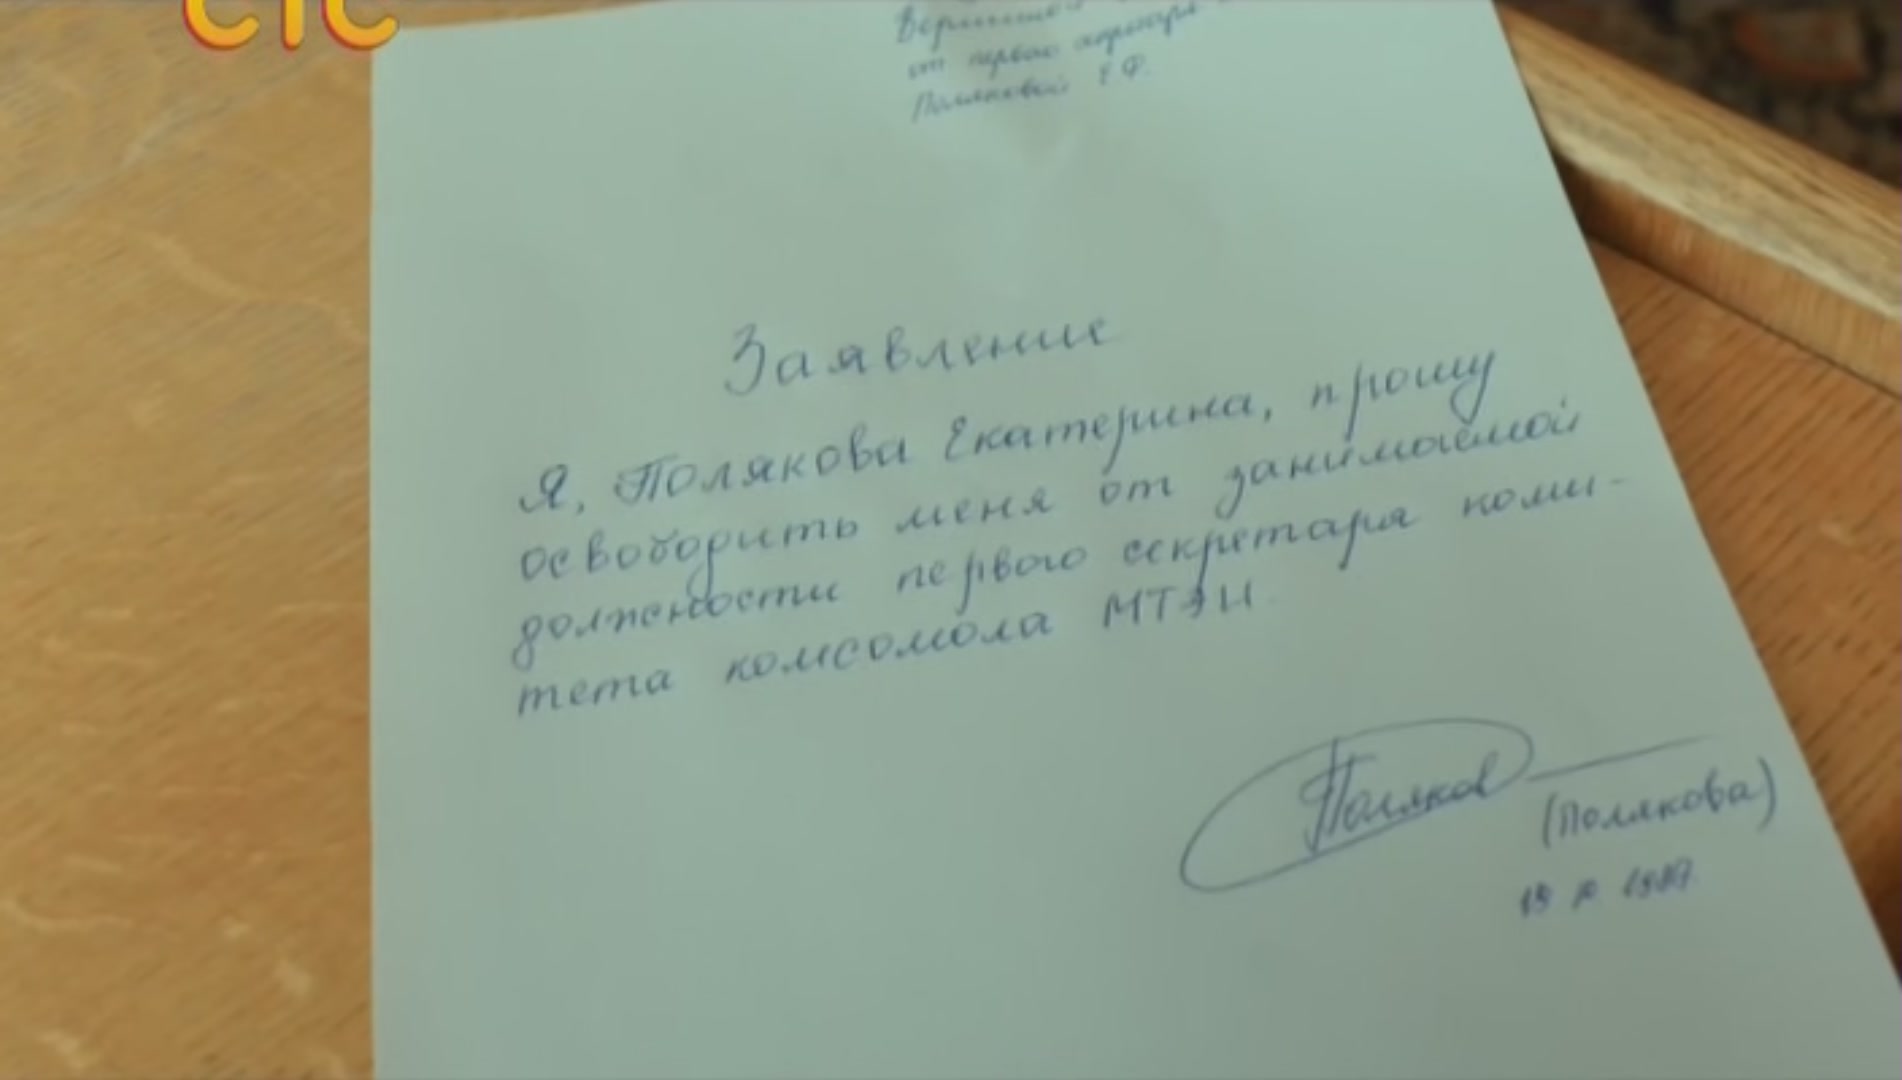 СТС
от первого секретаря
Поляковой Е.Ф.
Заявление
Я, Полякова Екатерина, прошу
освободить меня от занимаемой
должности первого секретаря коми-
тета комсомола МТЭИ.
Поляков
(Полякова)